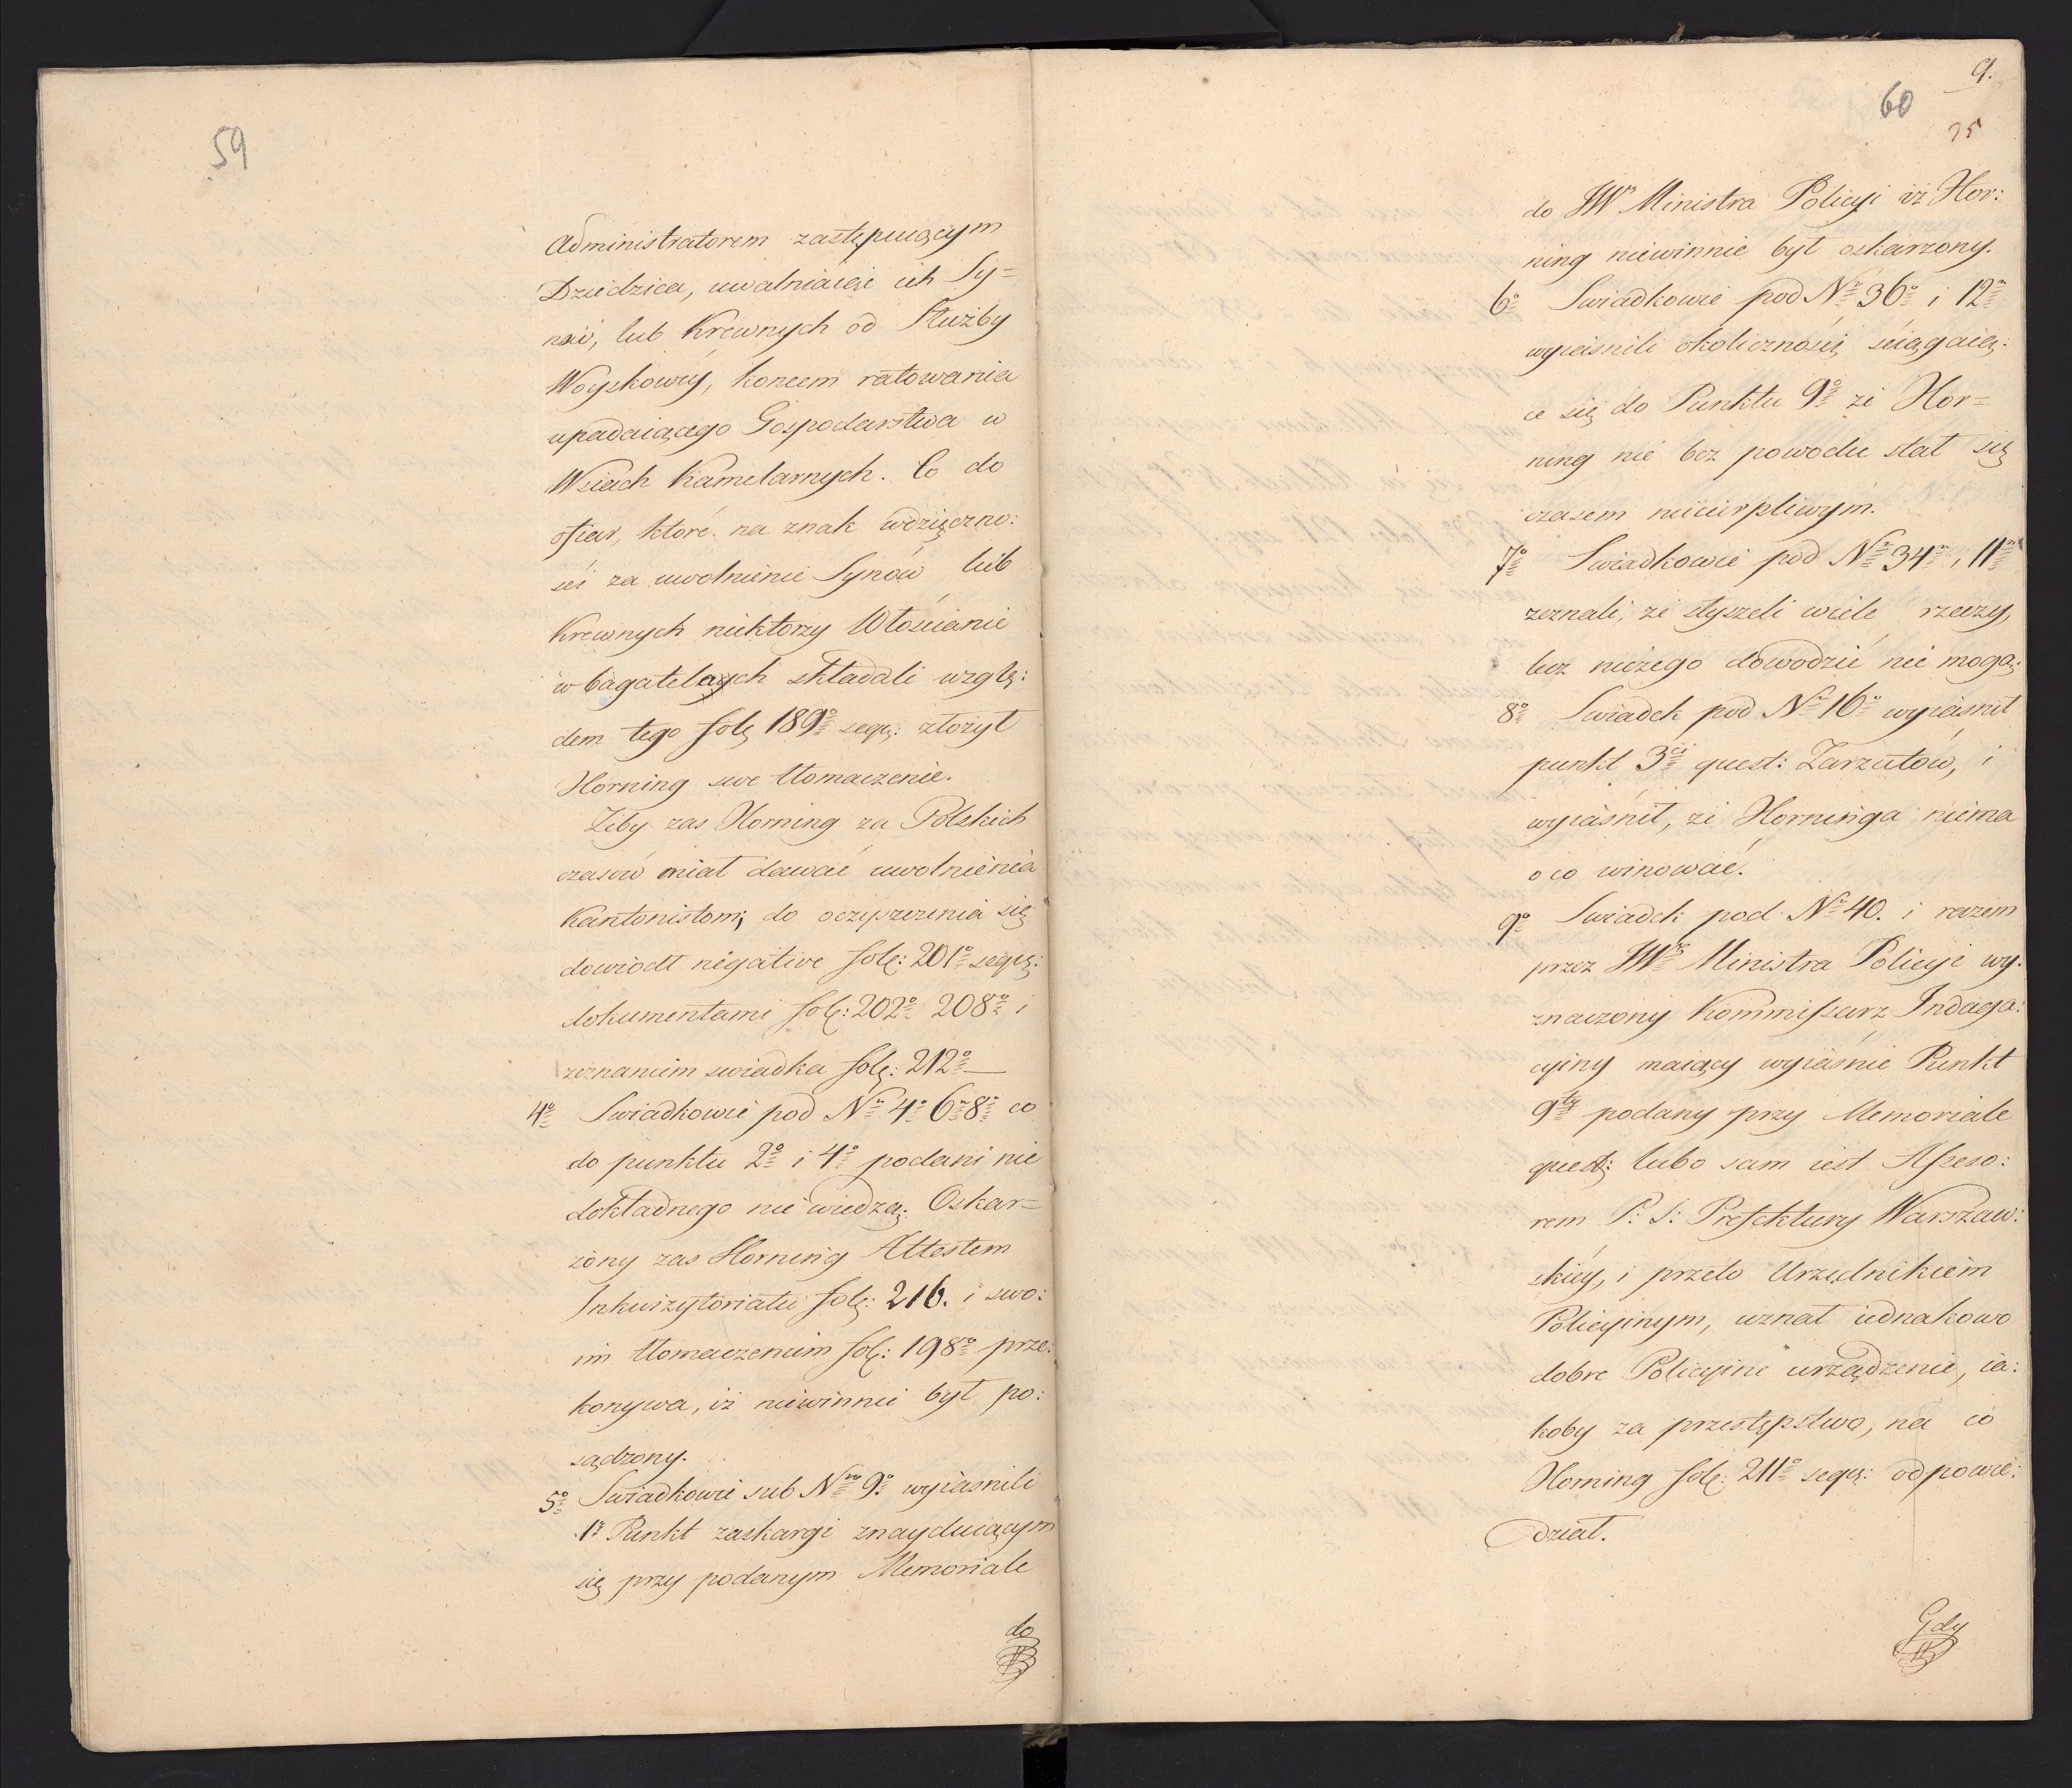 59
Administratorem zastępuiącym
Dziedzica, uwalniaiąc ich Sy=
nów, lub Krewnych od Służby
Woyskowéy, koncem ratowania
upadaiącego Gospodarstwa w
Wsiach Kamelarnych. Co do
ofiar, które na znak wdzięczno:
ści za uwolnienie Synów, lub
Krewnych niektorzy Włościanie
w bagatelach składali wzglę:
dem tego folę 189º seqq: złożył
Horning swe tłomaczenie.
Żeby zas Horning za Polskich
czasów miał dawać uwolnienia
Kantonistom, do oczyszczenia się
dowiodł negative fol: 201º seqq:
dokumentami fol: 202º 208º i
zeznaniem swiadka fol: 212º —
4º Swiadkowie pod Nº 4º 6º 8º co
do punktu 2º i 4º podani nic
dokładnego nie wiedzą. Oskar=
żony zas Horning Attestem
Inkwizytoriatu fol: 216. i swo:
im tłomaczeniem fol: 198º prze:
konywa, iż niewinnie był po:
sądzony.
5º Swiadkowie sub Nro 9º wyiasnili
1º Punkt zaskargi znayduiącym
się przy podanym Memoriale
do
9.
60
75
do JWº Ministra Policyi iż Hor:
ning niewinnie był oskarżony.
6º Swiadkowie pod Nº 36º i 12º
wyiasnili okoliczności ściągaią:
ce się do Punktu 9º że Hor=
ning nie bez powodu stał się
czasem niecierpliwym.
7º Swiadkowie pod Nº 34º, 11º
zeznali, że słyszeli wiele rzeczy,
lecz niczego dowodzić nie mogą.
8º Swiadek pod Nº 16º wyiasnił
punkt 3ci quest: Zarzutów, i
wyiaśnił, że Horninga niema
o co winować.
9º Swiadek pod Nº 40. i razem
przez JWº Ministra Policyi wy:
znaczony Kommissarz Indaga:
cyiny maiący wyiaśnić Punkt
9ty podany przy Memoriale
quest: lubo sam iest Assesso:
rem P: S: Prefektury Warszaw:
skiéy, i przeto Urzędnikiem
Policyinym, uznał iednakowo
dobre Policyine urządzenie, ia:
koby za przestępstwo, na co
Horning fol: 211º seqq: odpowie:
dział.
Gdy